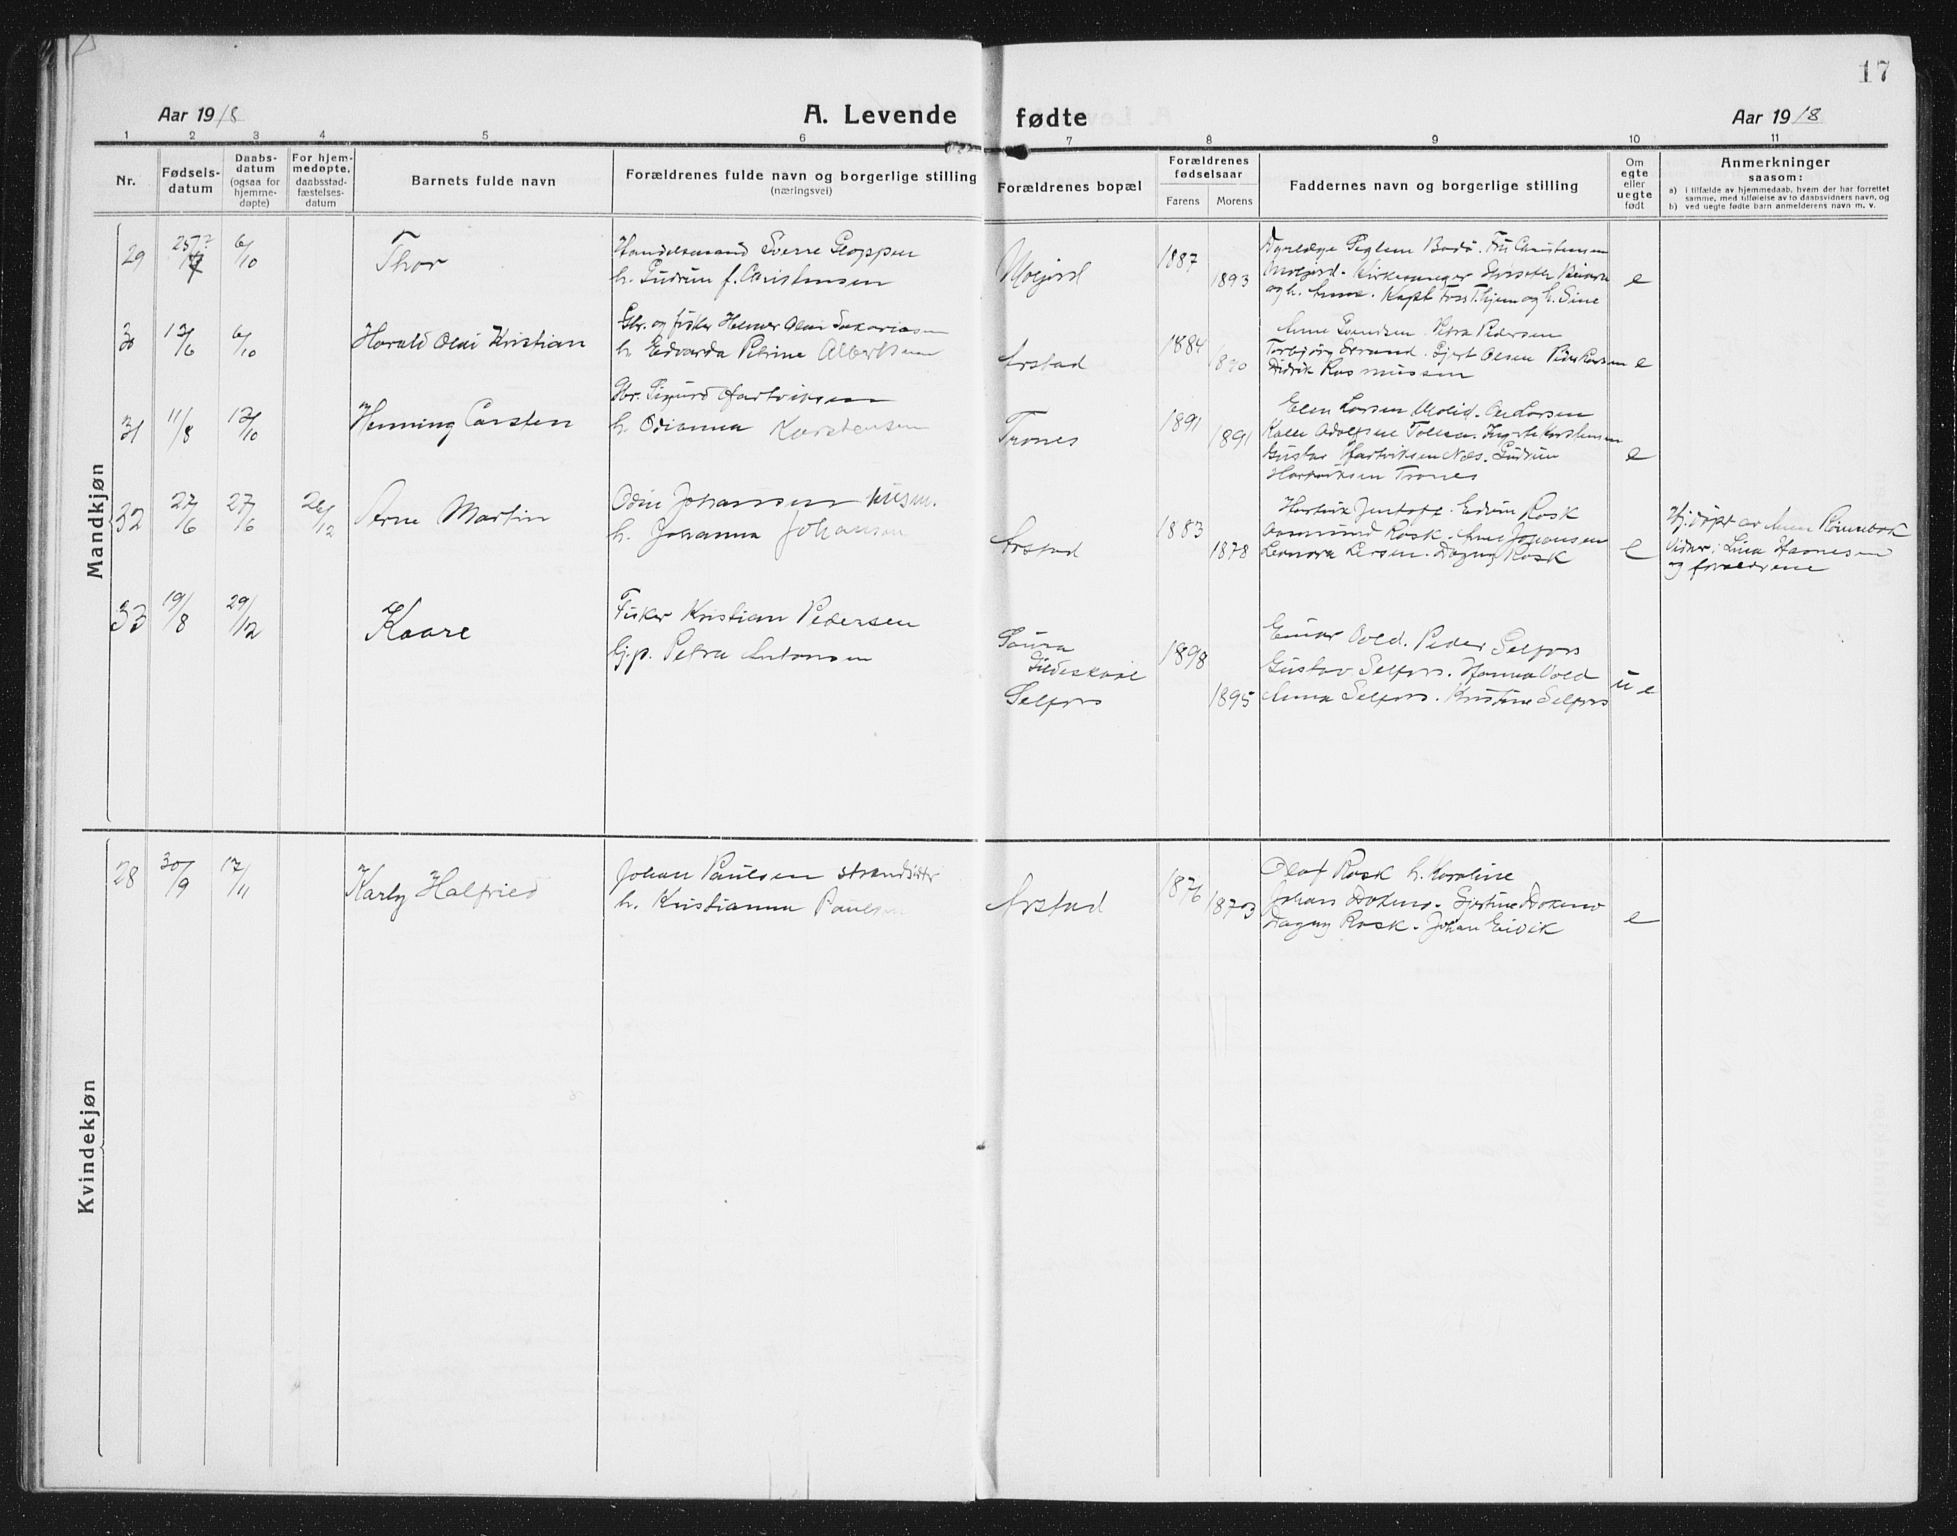 17
Aar 1918
A. Levende fødte
Aar 1918
1 2 3 4 5 6 7 8 9 10 11
Nr.
Fødsels-
datum
Daabs-
datum
(ogsaa for
hjemme-
døpte)
For hjem-
medøpte.
daabsstad-
fæstelses-
datum
Barnets fulde navn
Forældrenes fulde navn og borgerlige stilling
(næringsvei)
Forældrenes bopæl
Forældrenes
fødselsaar
Farens Morens
Faddernes navn og borgerlige stilling
Om
egte
eller
uegte
født
Anmerkninger
saasom:
a) i tilfælde av hjemmedaab, hvem der har forrettet
samme, med tilføielse av to daabsvidners navn, og
b) ved uegte fødte barn anmelderens navn m. v.
Mandkjøn
29 6/10 Thor
Handelsmand Sverre Gloppen
h. Gudrun f. Christensen
Moljord 1887 1893
Dyrlæge Bodø. Fru Christensen
Moljord. Kirkesanger Beiarn
og h. Anne. Kapt og h. Sine
e
30 6/10 Harald Olai Kristian
Gbr. og fisker Helmer Olai Sakariassen
h. Edvarda Petrine Albertsen
Arstad 1884
Anne Svendsen. Petra Pedersen
Torbjørg Strand. Gjert Olsen
Didrik Rasmussen
e
31 11/8 13/10 Henning Carsten
Gbr. Sigurd Hartviksen
h. Odianna Karstensen
Trones 1891 1891
Elen Larsen Molid. Larsen
Kalle Adolfsen Tollaa.
Gustav Hartviksen Næs. Gudrun
Hartviksen Trones
e
32 27/6 27/6 26/12 Arne Martin
Odin Johansen husm.
h. Johanna Johansen
Arstad 1883 1878
Hartvik Jentoft. Edvin Rosk
Aasmund Rosk. Arne Johansen
Leonora Larsen. Dagny Rosk
e
Hj.døpt av Anna
Vidner: Lina Hansen
og forældrene
33 19/8 29/12 Kaare
Fisker Kristian Pedersen
Gj.p. Petra Antonsen
Saura
Gildeskaal
Selfors
1898 1895
Einar Vold. Peder Selfors
Gustav Selfors. Hanna Vold
Anna Selfors. Kristine Selfors
u e
Kvindekjøn
28 30/9 17/11 Karly Halfried
Johan Paulsen strandsidder
h. Kristianna Paulsen
Arstad 1876 1873
Olaf Rosk h. Karoline
Johan Dokmo. Gjertine Dokmo
Dagny Rosk. Johan Eivik
e